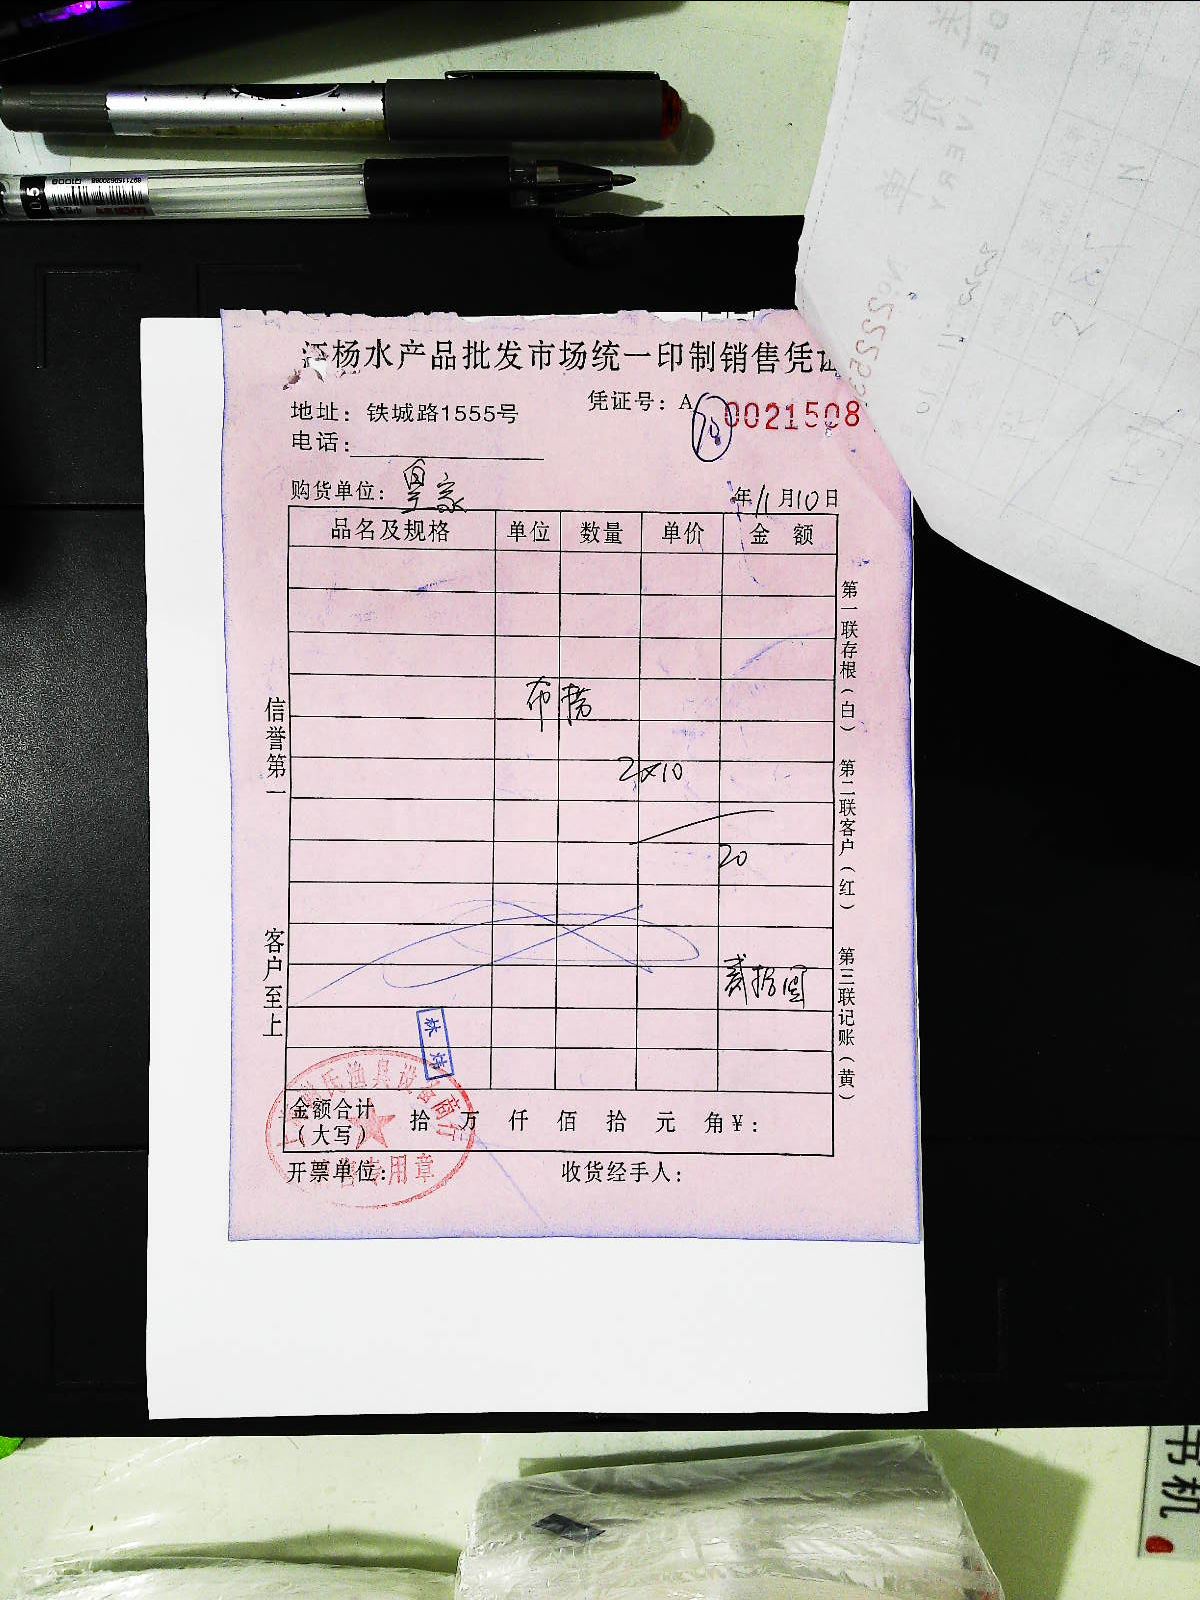 江杨水产品批发市场统一印制销售凭证
地址：铁城路1555号
凭证号：A 0021508
电话：
购货单位：皇家
年11月10日
品名及规格 单位 数量 单价 金 额
布
2×10
20
贰拾圆
金额合计
（大写）
拾 万 仟 佰 拾 元 角￥：
开票单位：
收货经手人：
信誉第一
客户至上
第一联存根（白）
第二联客户（红）
第三联记账（黄）
氏渔具设备商行
专用章
DELIVERY
0.5
书机